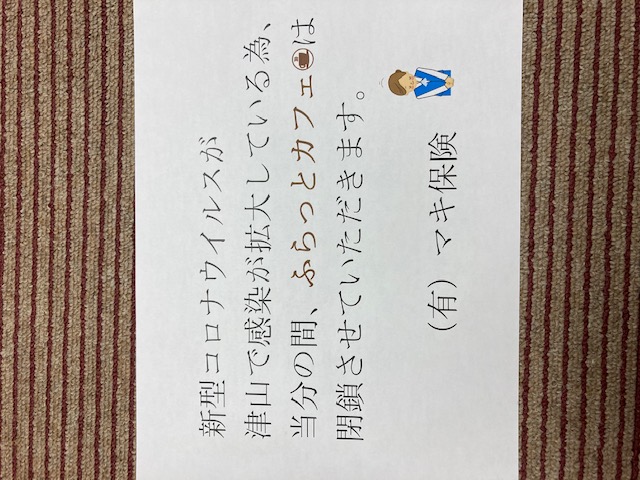 新型コロナウイルスが
津山で感染が拡大している為、
当分の間、ふらっとカフェは
閉鎖させていただきます。
(有) マキ保険